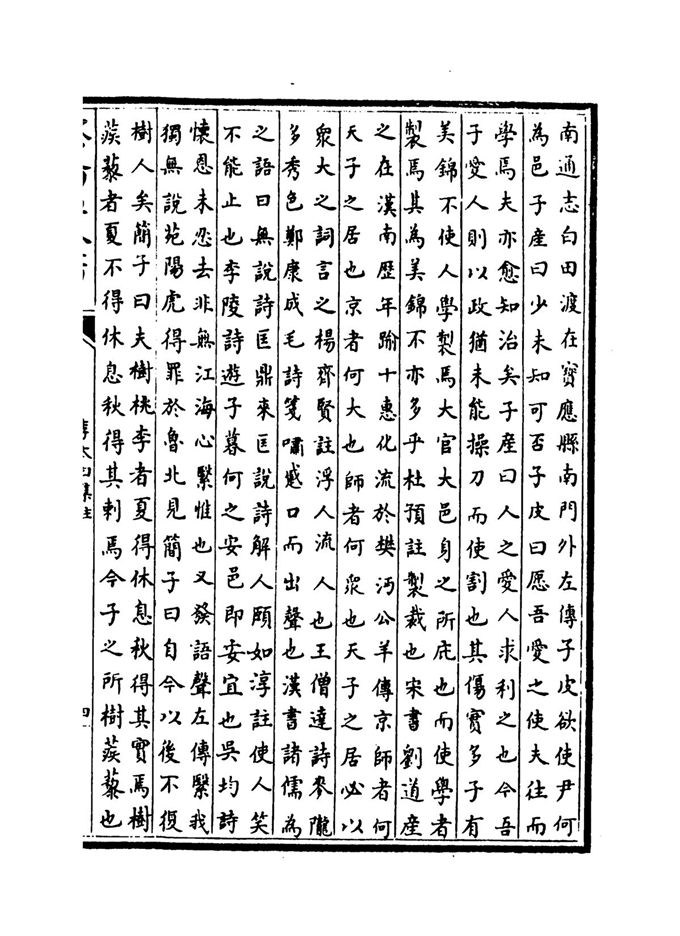 南通志白田渡在寳應縣南門外左傳子皮欲使尹何
為邑子產曰少未知可否子皮曰愿吾愛之使夫往而
學焉夫亦愈知治矣子產曰人之愛人求利之也今吾
子愛人則以政猶未能操刀而使割也其傷實多子有
美錦不使人學製焉大官大邑身之所庇也而使學者
製焉其為美錦不亦多乎杜預註製裁也宋書劉道產
之在漢南歴年踰十惠化流於樊沔公羊傳京師者何
天子之居也京者何大也師者何衆也天子之居必以
衆大之詞言之楊齊賢註浮人流人也王僧達詩麥隴
多秀色鄭康成毛詩箋嘯蹙口而出聲也漢書諸儒為
之語曰無說詩匡鼎來匡說詩解人頤如淳註使人笑
不能止也李陵詩遊子暮何之安邑即安宜也吳均詩
懷恩未忍去非無江海心繄惟也又發語聲左傳繄我
獨無說苑陽虎得罪於魯北見簡子曰自今以後不復
樹人矣簡子曰夫樹桃李者夏得休息秋得其實焉樹
蒺藜者夏不得休息秋得其刺焉今子之所樹蒺藜也